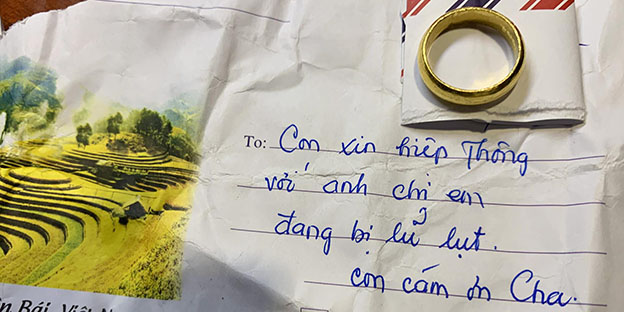 To: Con xin hiệp Thông
với anh chị em
đang bị lũ lụt.
con cám ơn Cha.
Bái, Việt